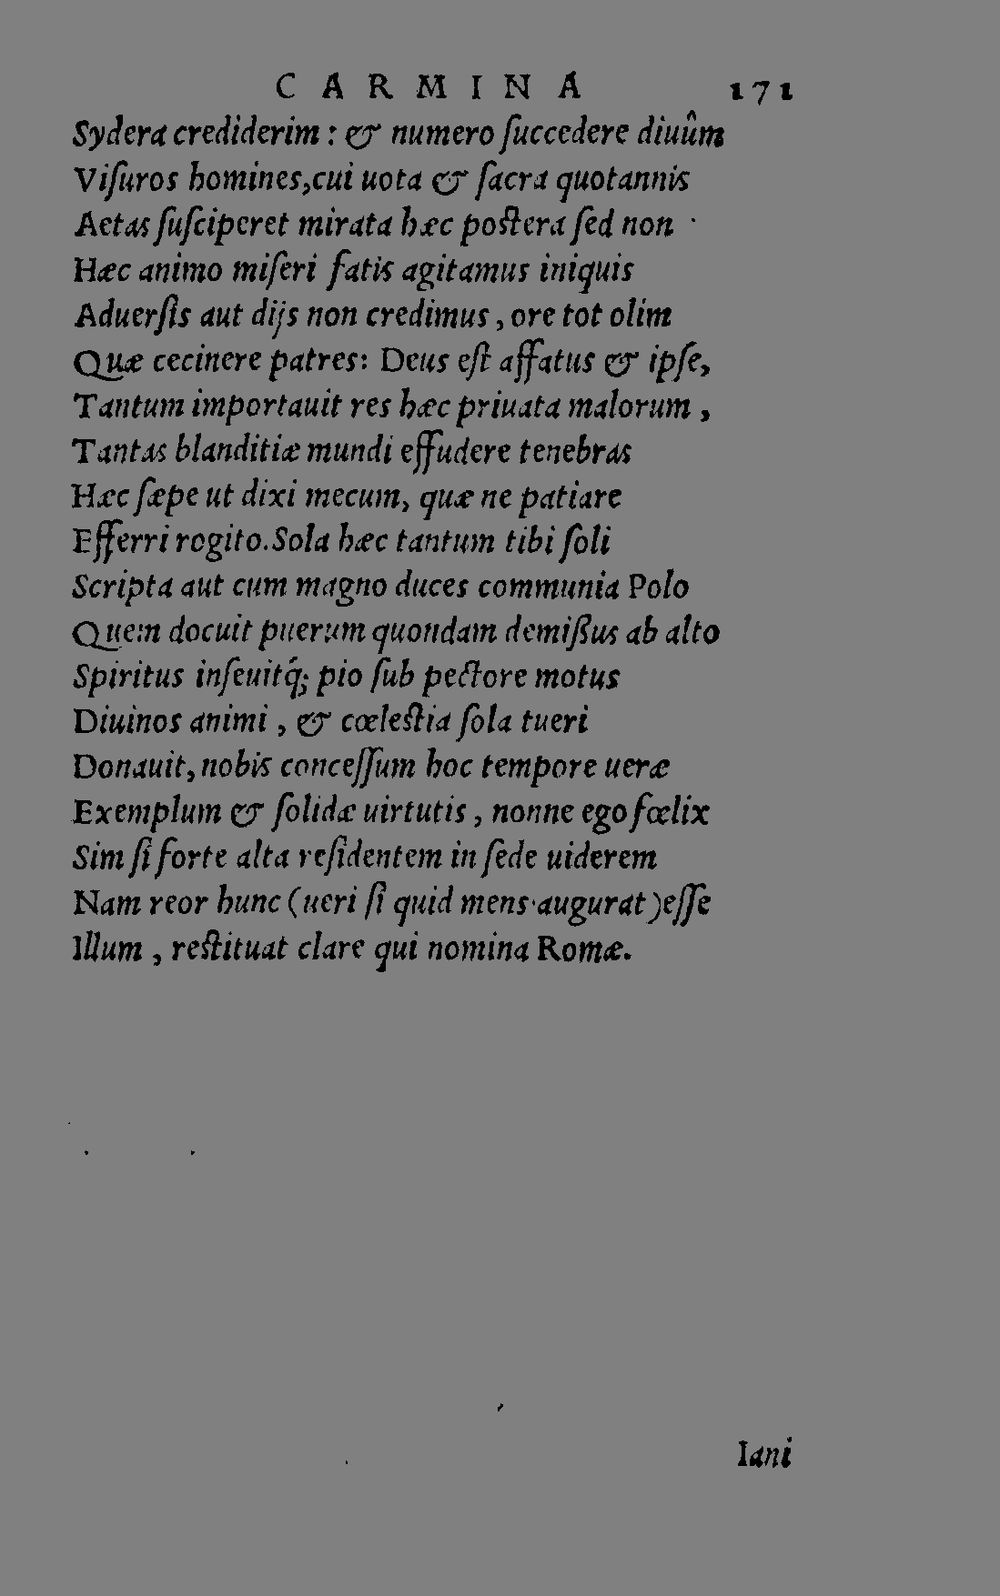 CARMINA 171
Sydera crediderim : & numero ſuccedere diuûm
Viſuros homines, cui uota & ſacra quotannis
Aetas ſuſciperet mirata hæc poſtera ſed non
Hæc animo miſeri fatis agitamus iniquis
Aduerſis aut dijs non credimus , ore tot olim
Quæ cecinere patres: Deus eſt affatus & ipſe,
Tantum importauit res hæc priuata malorum ,
Tantas blanditiæ mundi effudere tenebras
Hæc ſæpe ut dixi mecum, quæ ne patiare
Efferri rogito. Sola hæc tantum tibi ſoli
Scripta aut cum magno duces communia Polo
Quem docuit puerum quondam demißus ab alto
Spiritus inſeuitq́; pio ſub pectore motus
Diuinos animi , & cœleſtia ſola tueri
Donauit, nobis conceſſum hoc tempore ueræ
Exemplum & ſolidæ uirtutis , nonne ego fœlix
Sim ſi forte alta reſidentem in ſede uiderem
Nam reor hunc (ueri ſi quid mens augurat) eſſe
Illum , reſtituat clare qui nomina Romæ.
Iani